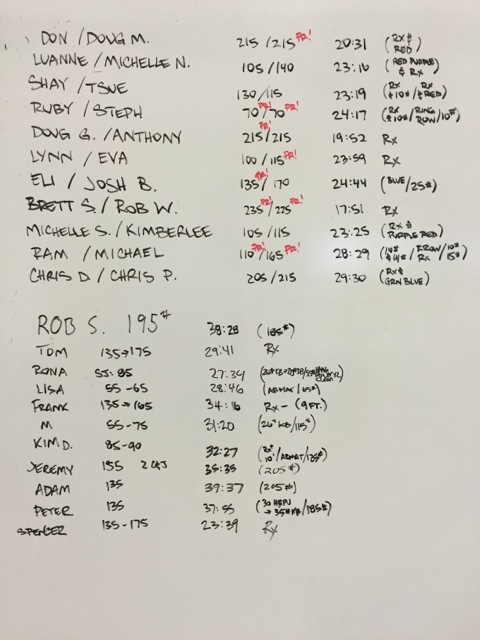 DON / DOUG M. 215 / 215 PR! 20:31 (RX & RED)
LUANNE / MICHELLE N. 105 / 140 23:16 (RED PURPLE & RX)
SHAY / TSUE 130 / 115 23:19 (RX & 10# / RX & RED)
RUBY / STEPH 70 PR! / 70 PR! 24:17 (RX & 10# / RING ROW / 10#)
DOUG G. / ANTHONY 215 PR! / 215 19:52 RX
LYNN / EVA 100 / 115 PR! 23:59 RX
ELI / JOSH B. 135 PR! / 170 24:44 (BLUE / 25#)
BRETT S. / ROB W. 235 PR! / 225 PR! 17:51 RX
MICHELLE S. / KIMBERLEE 105 / 115 23:25 (RX & PURPLE RED)
RAM / MICHAEL 110 PR! / 165 PR! 28:29
CHRIS D / CHRIS P. 205 / 215 29:30 (RX & GRN BLUE)
ROB S. 195# 38:28 (185#)
TOM 135→175 29:41 RX
RONA 55-85 27:34
LISA 55-65 28:46 (ABMAT / 65#)
FRANK 135→165 34:16 RX - (9FT.)
M 55-75 31:20 (26# KB / 115#)
KIM D. 85-90 32:27
JEREMY 155 2 C&J 35:35 (205#)
ADAM 135 39:37 (205#)
PETER 135 37:55 (30 HSPU → 35# KB / 185#)
SPENCER 135-175 23:39 RX